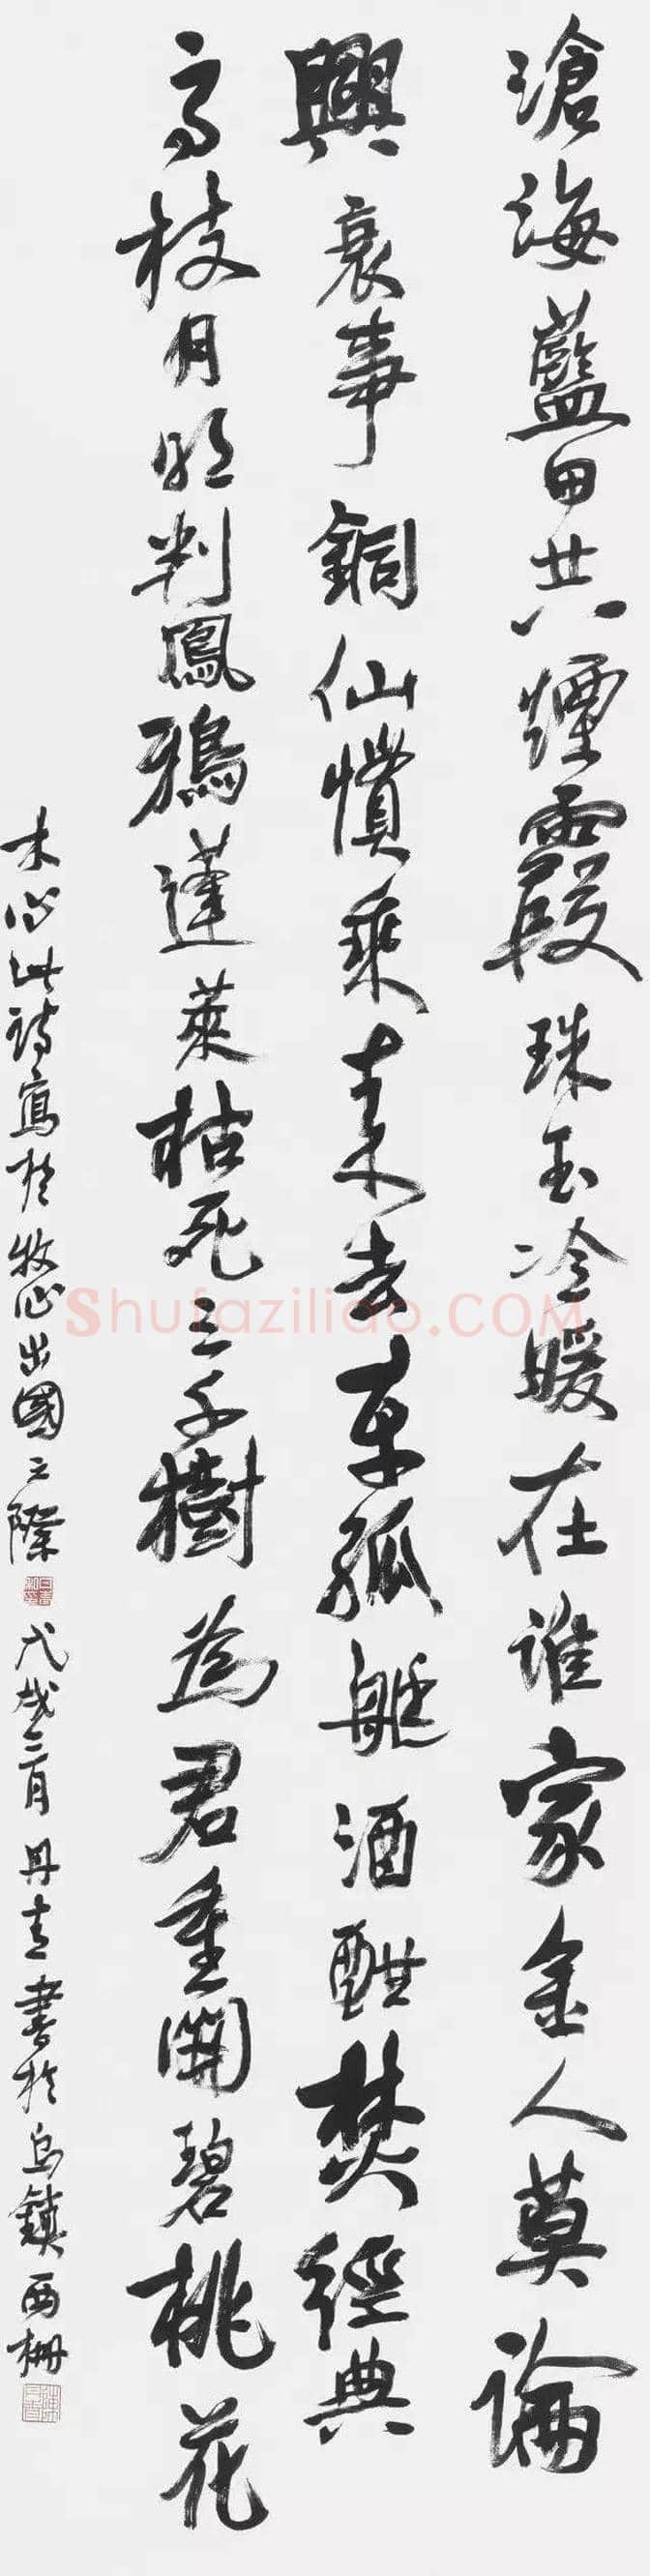 滄海藍田共煙霞珠玉冷暖在谁家金人莫論
興衰事銅仙慣乘来去車孤艇酒酣焚經典
高枝月明判鳳鴉蓬萊枯死三千樹為君重開碧桃花
木心此詩寫於牧心出國之際
戊戌三月丹青書於烏鎮西柵
Shufaziliao.COM